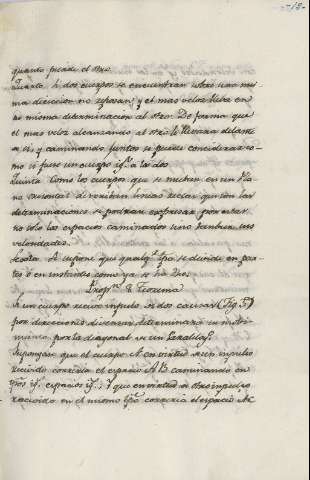 -15-
quanto pierde el otro.
Quarto Si dos cuerpos se encuentran sobre una mis
ma direccion no reposan, y el mas veloz lleva en
su misma determinacion al otro. De forma que
el mas veloz alcanzando al otro le llevara delante
a si, y caminando juntos se puede considerar co-
mo si fuese un cuerpo igl. a los dos
Quinta Como los cuerpos que se mueben en un Pla-
no orisontal describen lineas rectas que son las
determinaciones se podran expresar por estas
no solo los espacios caminados sino tambien sus
velocidades.
Sexta Se supone que qualqr. tpo se divide en par-
tes o en instantes como ya se ha dho.
Propn. 8 Teorema
Si un cuerpo recive inpulso de dos causas (Fig. 5ª)
por direcciones diversas determinará su movi-
miento por la diagonal de un Paralelogo.
Supongase que el cuerpo A en virtud de un impulso
recivido correria el espacio AB caminando en
tpos igs. espacios igs.; Y que en virtud de otro inpulso
recivido en el mismo tpo correria el espacio AC